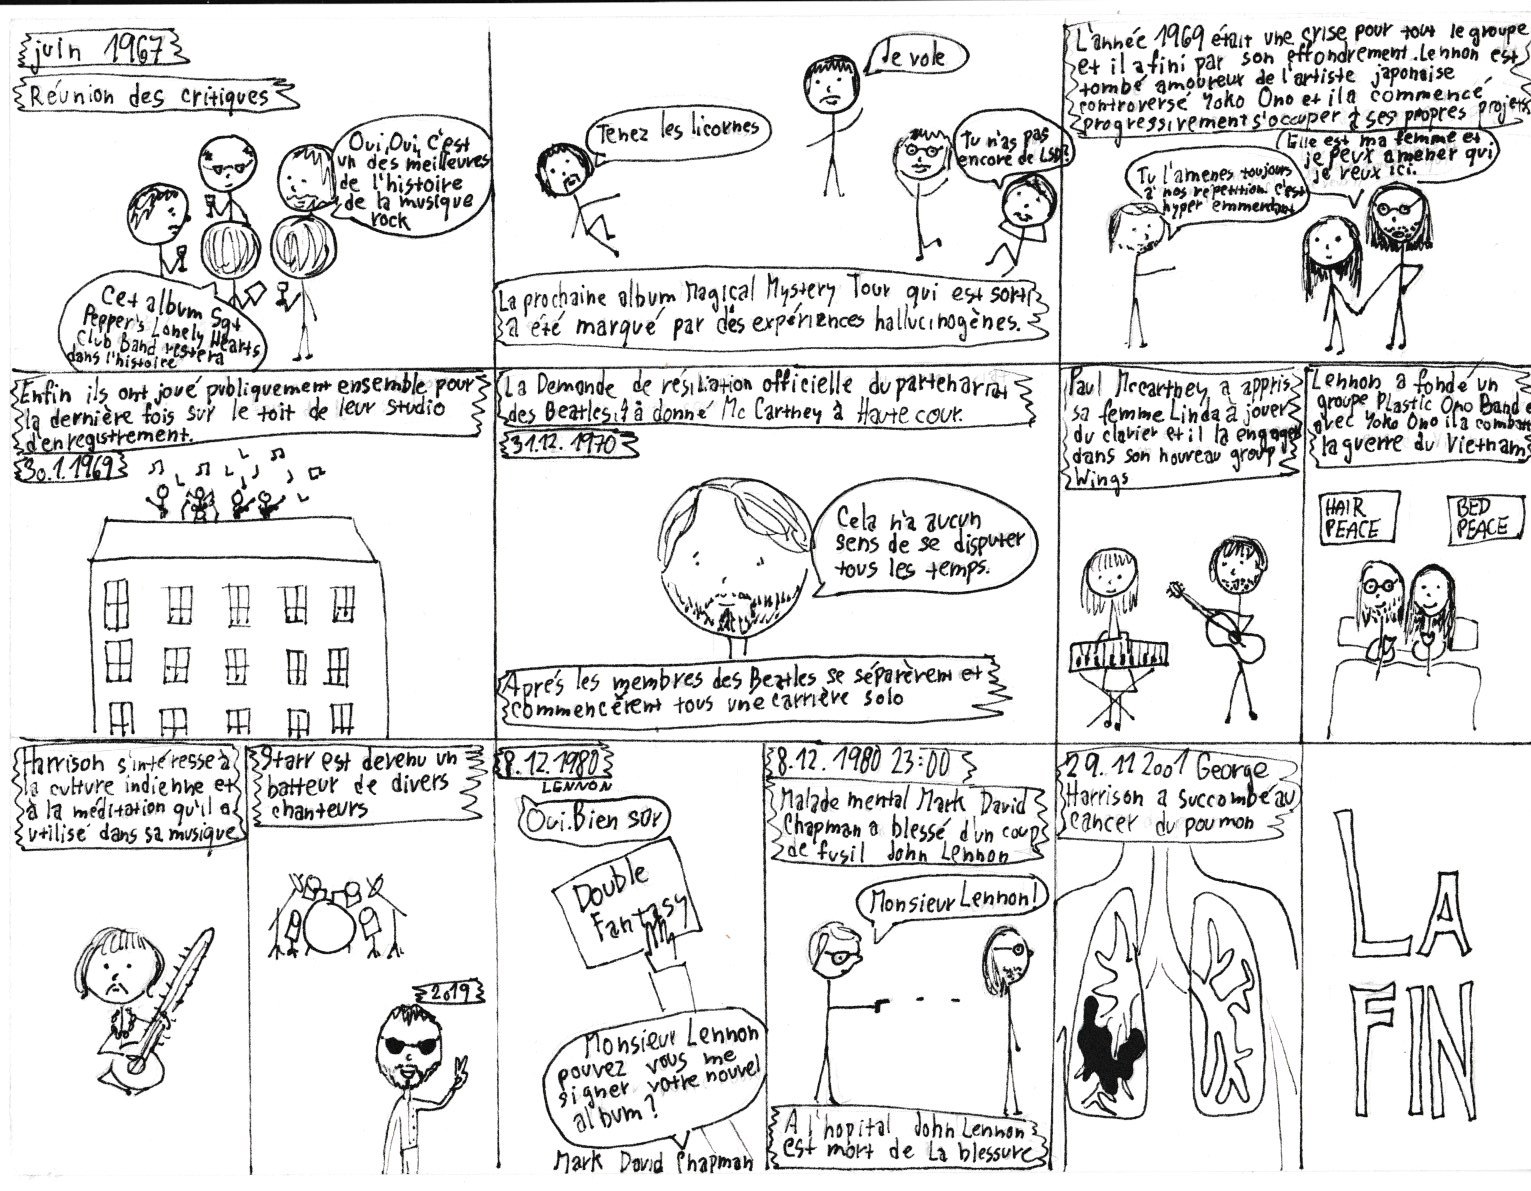 juin 1967
Réunion des critiques
Oui, Oui, c'est
un des meilleures
de l'histoire
de la musique
rock
Cet album Sgt
Pepper's Lonely Hearts
Club Band restera
dans l'histoire
Tenez les licornes
Je vole
Tu n'as pas
encore de LSD?
La prochaine album Magical Mystery Tour qui est sorti
a été marqué par des expériences hallucinogènes.
L'année 1969 était une crise pour tout le groupe
et il a fini par son effondrement. Lennon est
tombé amoureux de l'artiste japonaise
controversé Yoko Ono et il a commencé
progressivement s'occuper à ses propres projets
Tu l'amenes toujours
à nos repetition. c'est
hyper emmerdant
Elle est ma femme et
je peux amener qui
je veux ici.
Enfin ils ont joué publiquement ensemble pour
la dernière fois sur le toit de leur studio
d'enregistrement.
30.1.1969
La Demande de résiliation officielle du partenariat
des Beatles à donné Mc Cartney à Haute cour.
31.12.1970
Cela n'a aucun
sens de se disputer
tous les temps.
Aprés les membres des Beatles se séparèrent et
commencèrent tous une carrière solo
Paul Mccartney a appris
sa femme Linda à jouer
du clavier et il la engager
dans son nouveau group
Wings
Lennon a fondé un
groupe Plastic Ono Band et
avec Yoko Ono il a combatt
la guerre du Vietnam
HAIR
PEACE
BED
PEACE
Harrison s'intéresse à
la culture indienne et
à la méditation qu'il a
utilisé dans sa musique
Starr est devenu un
batteur de divers
chanteurs
2019
8.12.1980
LENNON
Oui. Bien sûr
Double
Fantasy
Monsieur Lennon
pouvez vous me
signer votre nouvel
album?
Mark David Chapman
8.12.1980 23:00
Malade mental Mark David
Chapman a blessé d'un coup
de fusil John Lennon
Monsieur Lennon!
A l'hopital John Lennon
est mort de la blessure
29.11 2001 George
Harrison a succombé au
cancer du poumon
LA
FIN